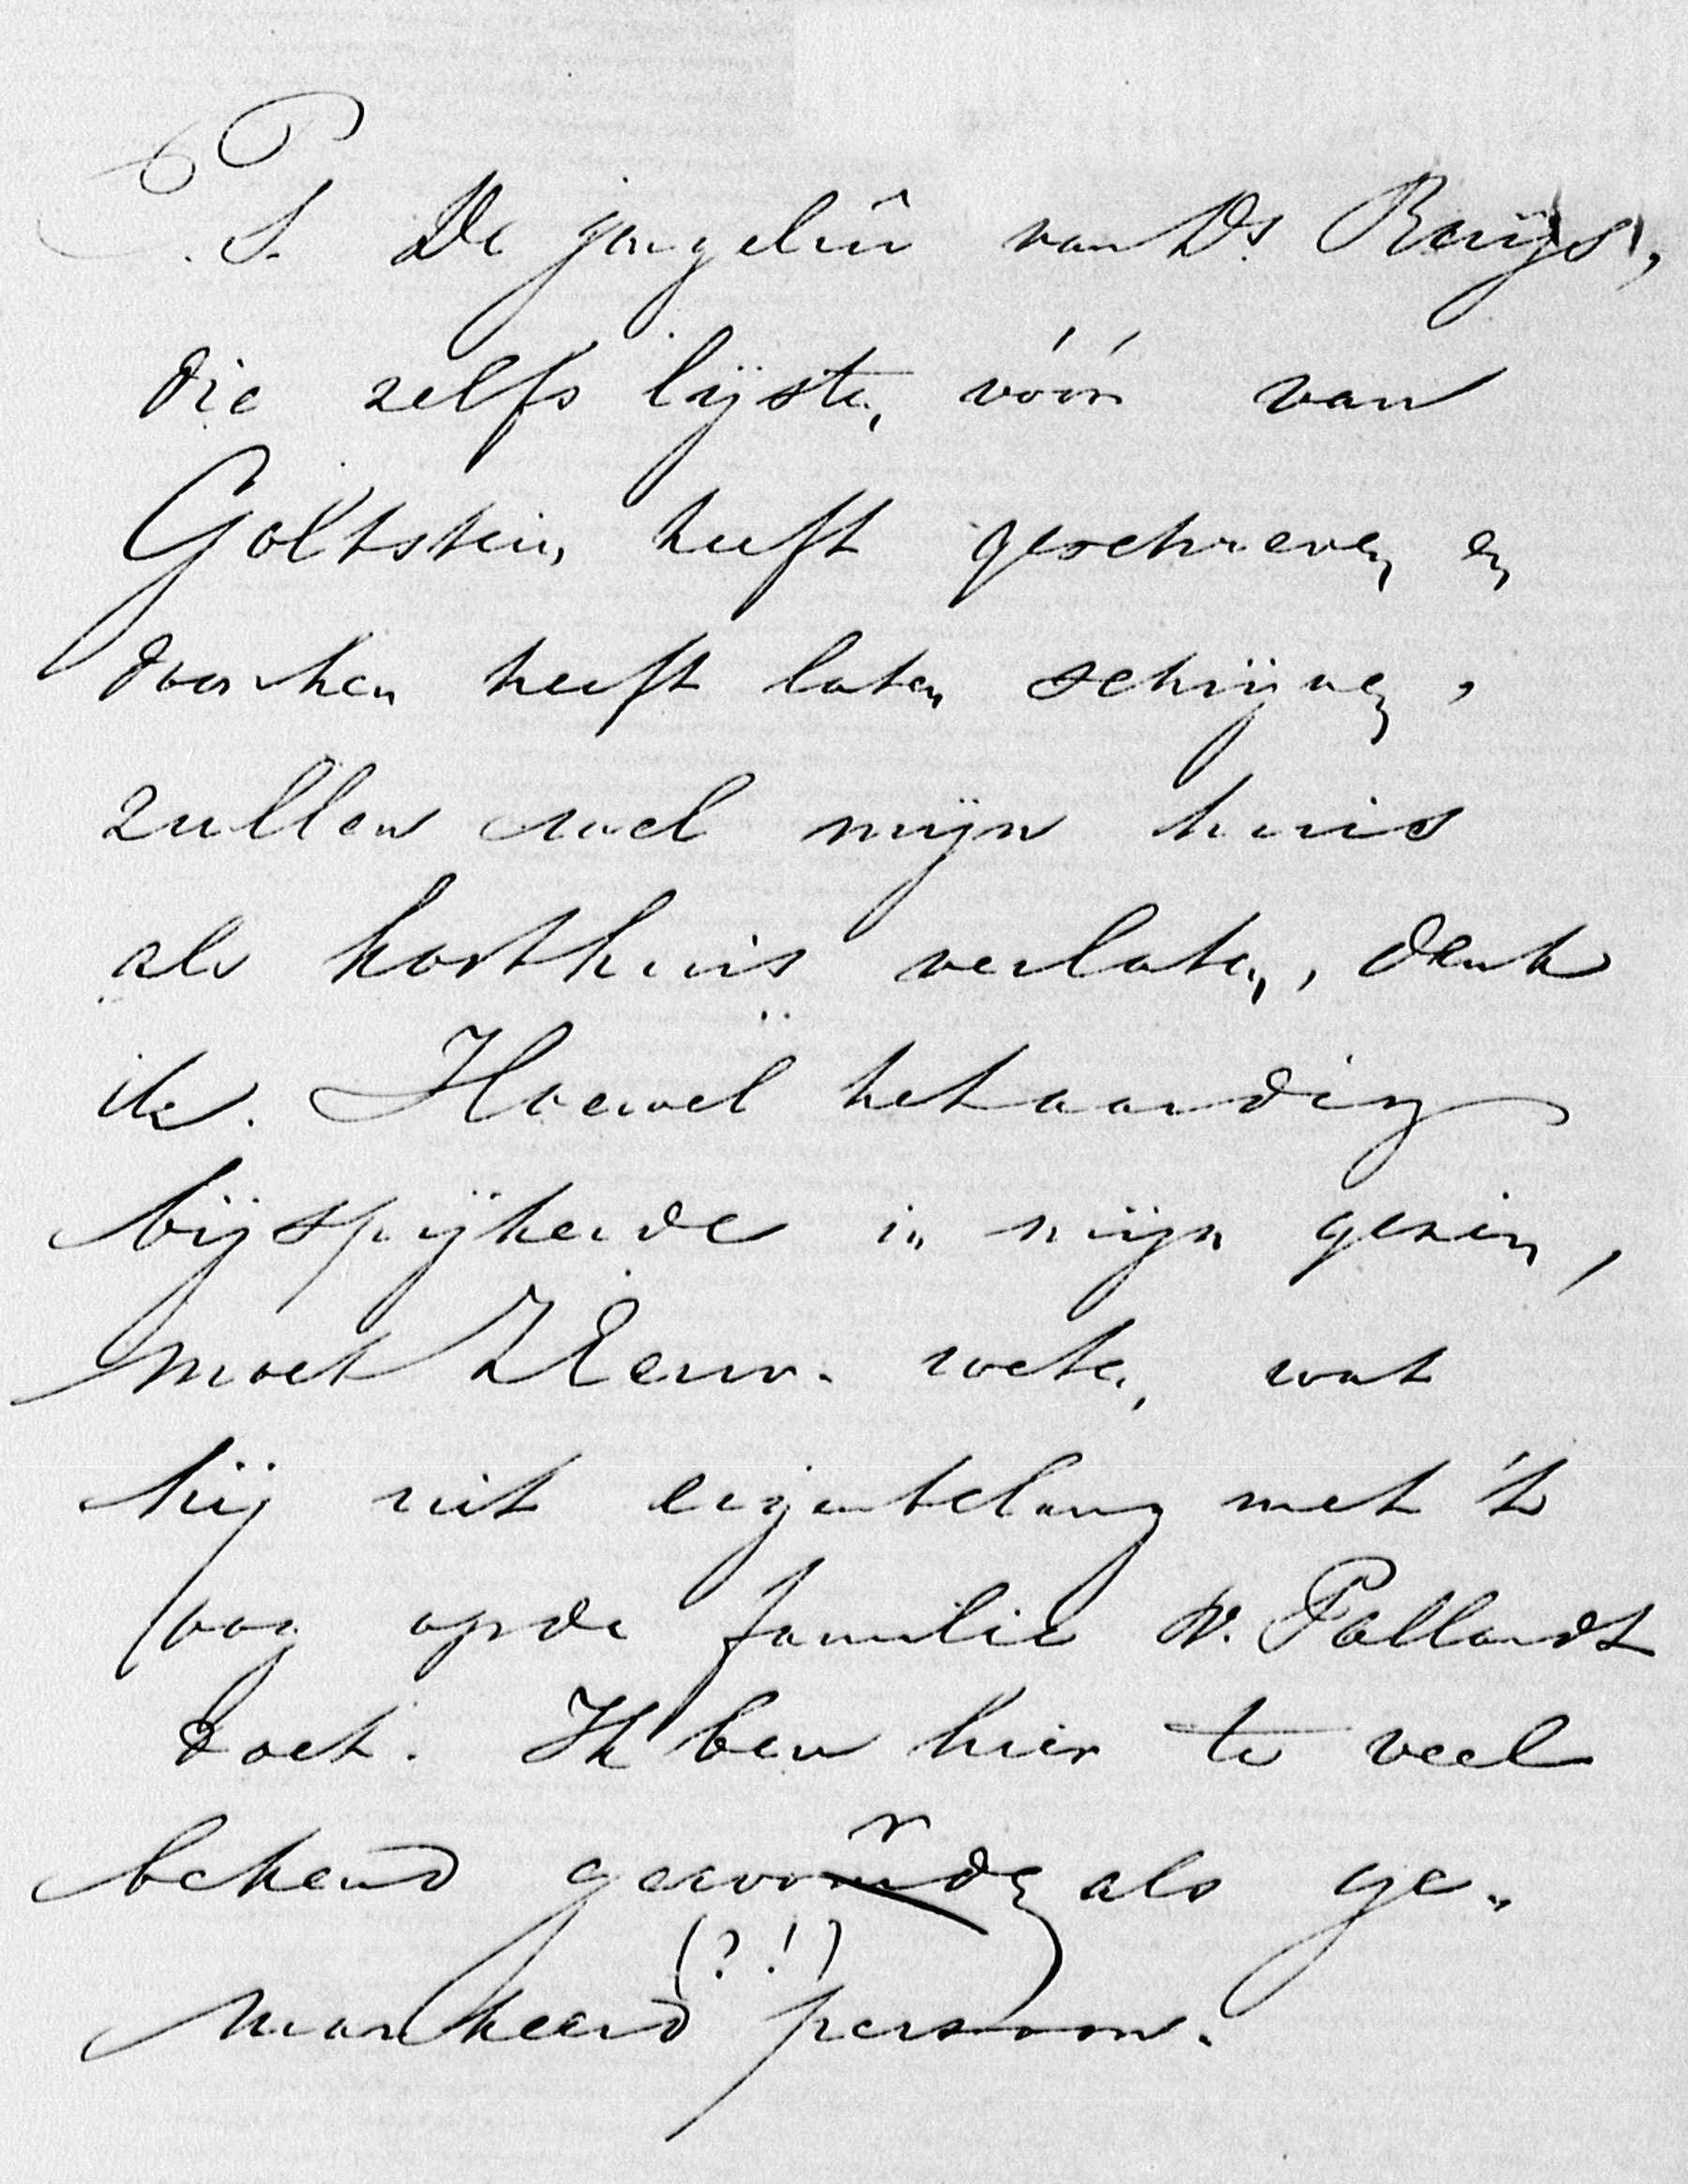 P.S. De jongelui van Ds. Ruijs,
die zelfs lijsten vóór van
Goltstein heeft geschreven en
door hen heeft laten schrijven,
zullen wel mijn huis
als kosthuis verlaten, denk
ik. Hoewel het aardig
bijspijkerde in mijn gezin,
moet ZEerw. weten, wat
hij uit eigenbelang met 't
oog op de familie v. Pallandt
doet. Ik ben hier te veel
bekend geworden als ge-
(?!)
markeerd persoon.